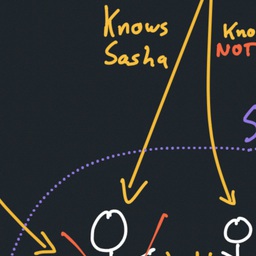 Knows
Sasha
Kno
NOT
S